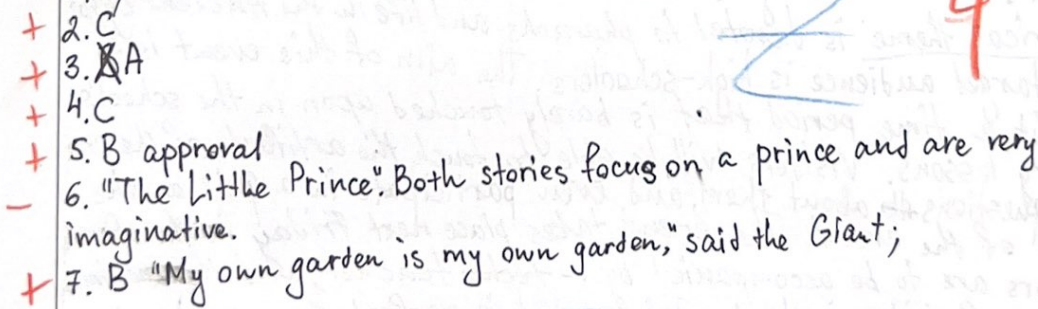 + 2. C 4
+ 3. A
+ 4. C
+ 5. B approval
- 6. "The Little Prince". Both stories focus on a prince and are very
imaginative.
+ 7. B "My own garden is my own garden," said the Giant;